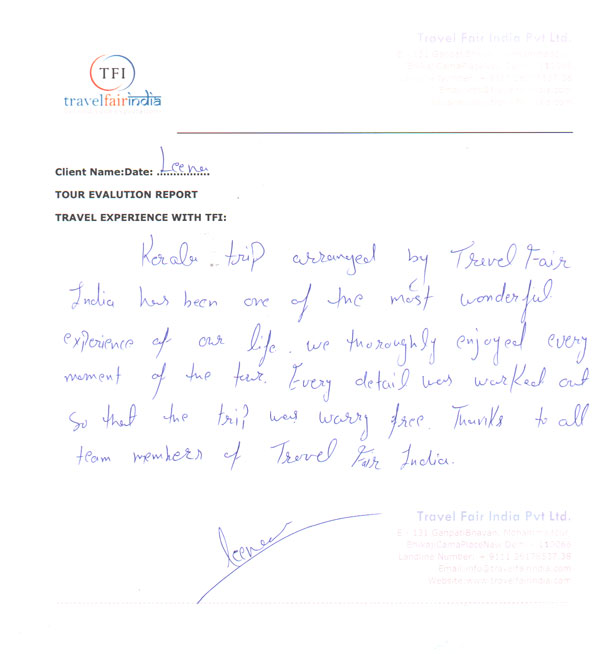 Travel Fair India Pvt Ltd.
TFI
travelfairindia
Client Name:Date: Leena
TOUR EVALUTION REPORT
TRAVEL EXPERIENCE WITH TFI:
Kerala trip arranged by Travel Fair
India has been one of the most wonderful
experience of our life. we thoroughly enjoyed every
moment of the tour. Every detail was worked out
so that the trip was worry free. Thanks to all
team members of Travel Fair India.
Leena
Travel Fair India Pvt Ltd.
Landline Number:
Email: info@travelfairindia.com
Website:www.travelfairindia.com